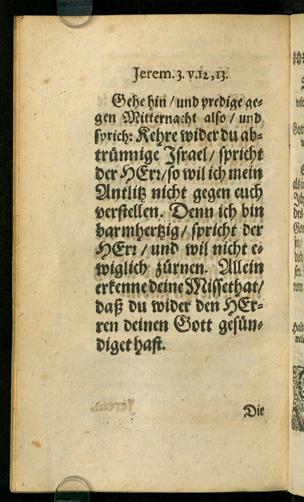 Jerem. 3. v. 12, 13.
Gehe hin / und predige ge-
gen Mitternacht also / und
sprich: Kehre wider du ab-
trünnige Israel / spricht
der HErr / so wil ich mein
Antlitz nicht gegen euch
verstellen. Denn ich bin
barmhertzig / spricht der
HErr / und wil nicht e-
wiglich zürnen. Allein
erkenne deine Missethat /
daß du wider den HEr-
ren deinen Gott gesün-
diget hast.
Die